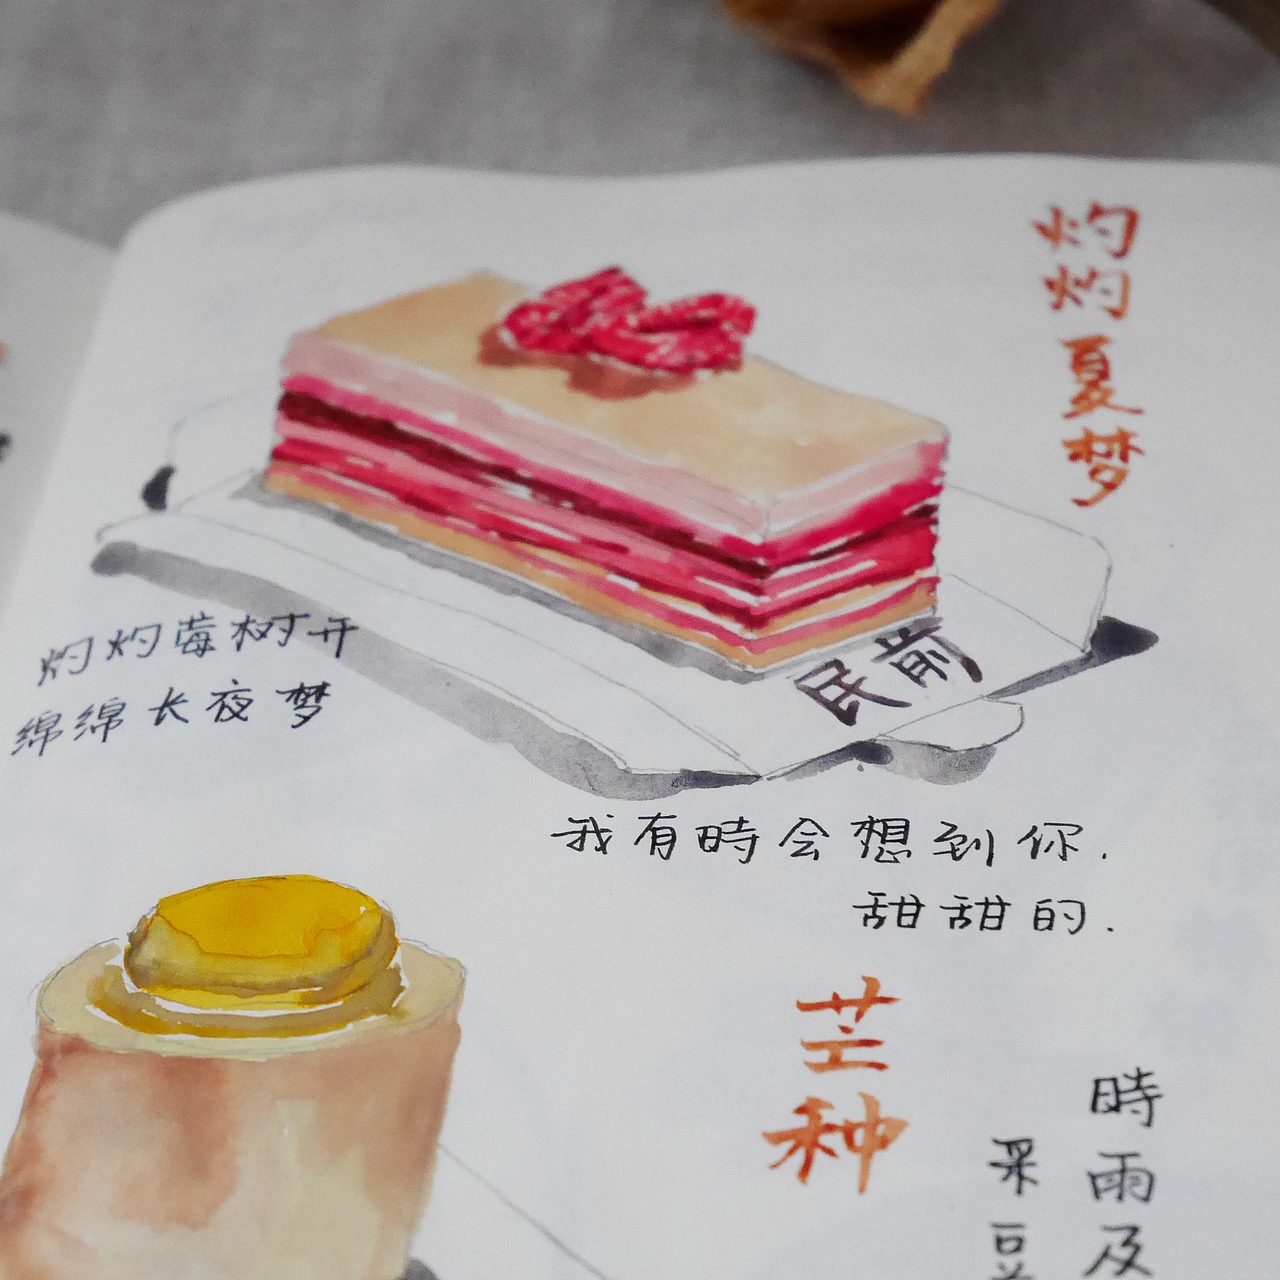 灼灼夏梦
灼灼莓树开
绵绵长夜梦
民前
我有時会想到你.
甜甜的.
芒种
時雨及